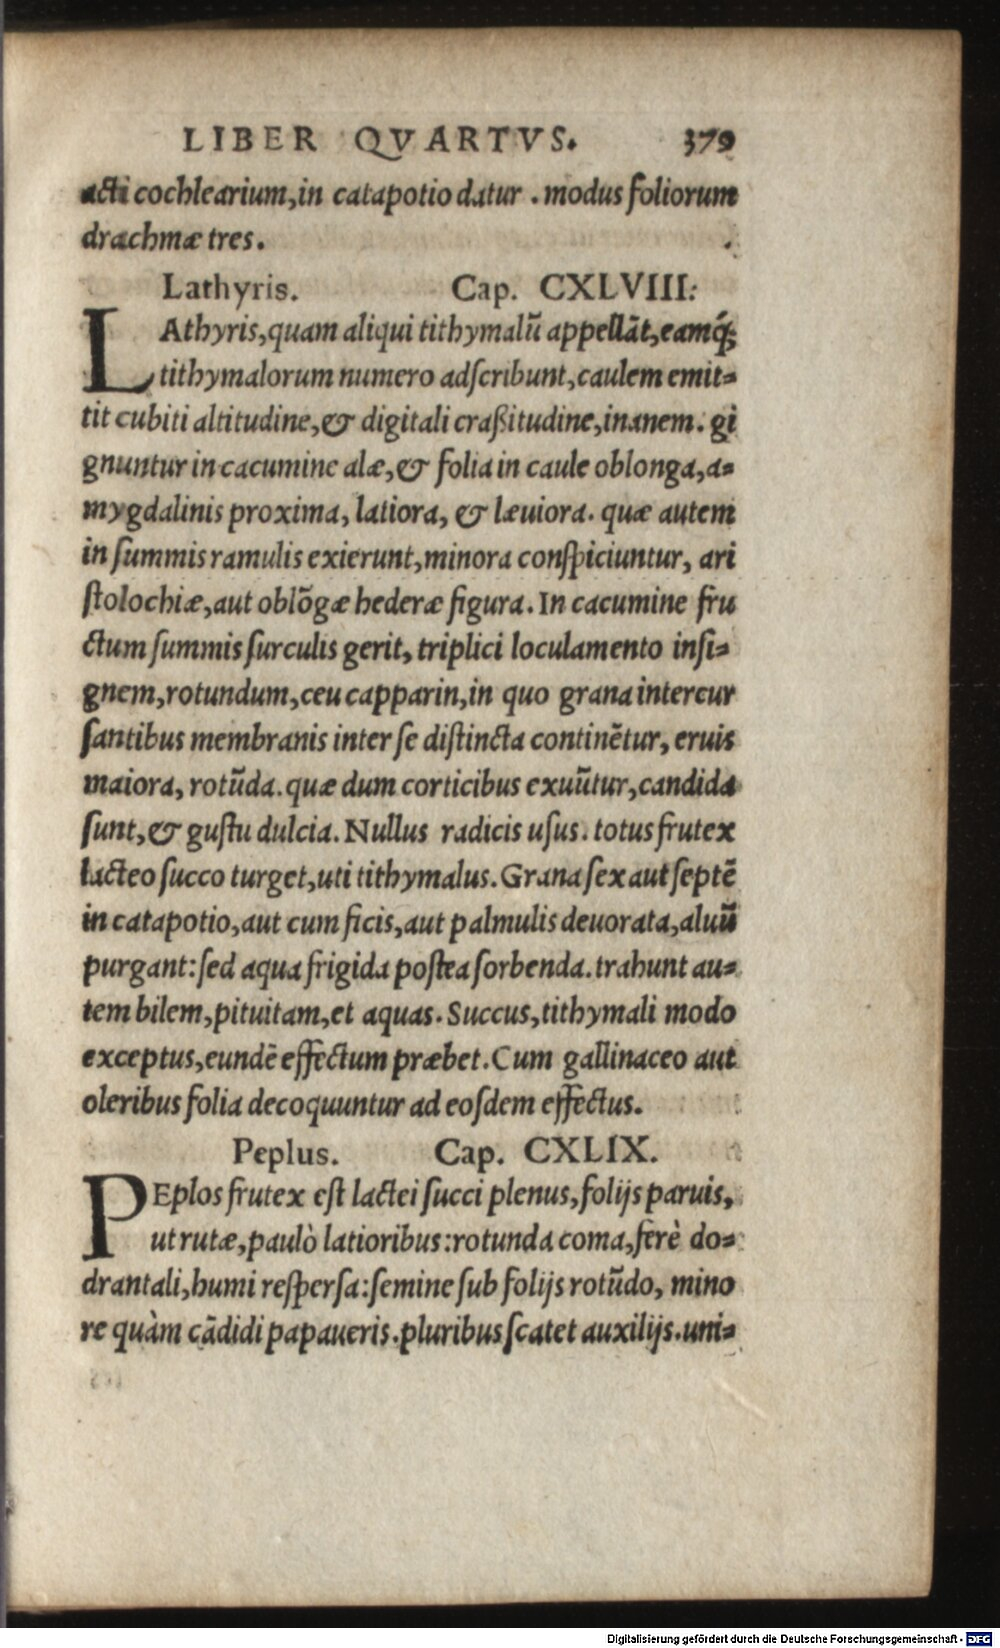 LIBER QVARTVS. 379
acti cochlearium,in catapotio datur . modus foliorum
drachmæ tres.
Lathyris. Cap. CXLVIII:
LAthyris,quam aliqui tithymalū appellāt,eamq́;
tithymalorum numero adſcribunt,caulem emit-
tit cubiti altitudine,& digitali craßitudine,inanem. gi
gnuntur in cacumine alæ,& folia in caule oblonga,a-
mygdalinis proxima, latiora, & læuiora. quæ autem
in ſummis ramulis exierunt,minora conſpiciuntur, ari
ſtolochiæ,aut oblōgæ hederæ figura. In cacumine fru
ctum ſummis ſurculis gerit, triplici loculamento inſi-
gnem,rotundum,ceu capparin,in quo grana intercur
ſantibus membranis inter ſe diſtincta continētur, eruis
maiora, rotūda. quæ dum corticibus exuūtur,candida
ſunt,& guſtu dulcia. Nullus radicis uſus. totus frutex
lacteo ſucco turget,uti tithymalus. Grana ſex aut ſeptē
in catapotio,aut cum ficis,aut palmulis deuorata,aluū
purgant:ſed aqua frigida poſtea ſorbenda. trahunt au-
tem bilem,pituitam,et aquas. Succus,tithymali modo
exceptus,eundē effectum præbet. Cum gallinaceo aut
oleribus folia decoquuntur ad eoſdem effectus.
Peplus. Cap. CXLIX.
PEplos frutex eſt lactei ſucci plenus,folijs paruis,
ut rutæ,paulò latioribus:rotunda coma,ferè do-
drantali,humi reſperſa:ſemine ſub folijs rotūdo, mino
re quàm cādidi papaueris.pluribus ſcatet auxilijs.uni-
Digitalisierung gefördert durch die Deutsche Forschungsgemeinschaft - DFG